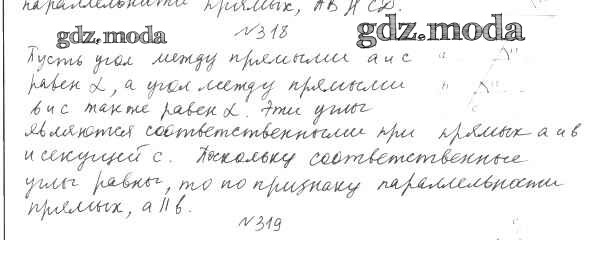 параллельности прямых, AB || CD.
gdz.moda №318 gdz.moda
Пусть угол между прямыми a и c
равен α, а угол между прямыми
b и c также равен α. Эти углы
являются соответственными при прямых a и b
и секущей c. Поскольку соответственные
углы равны, то по признаку параллельности
прямых, a || b.
№319